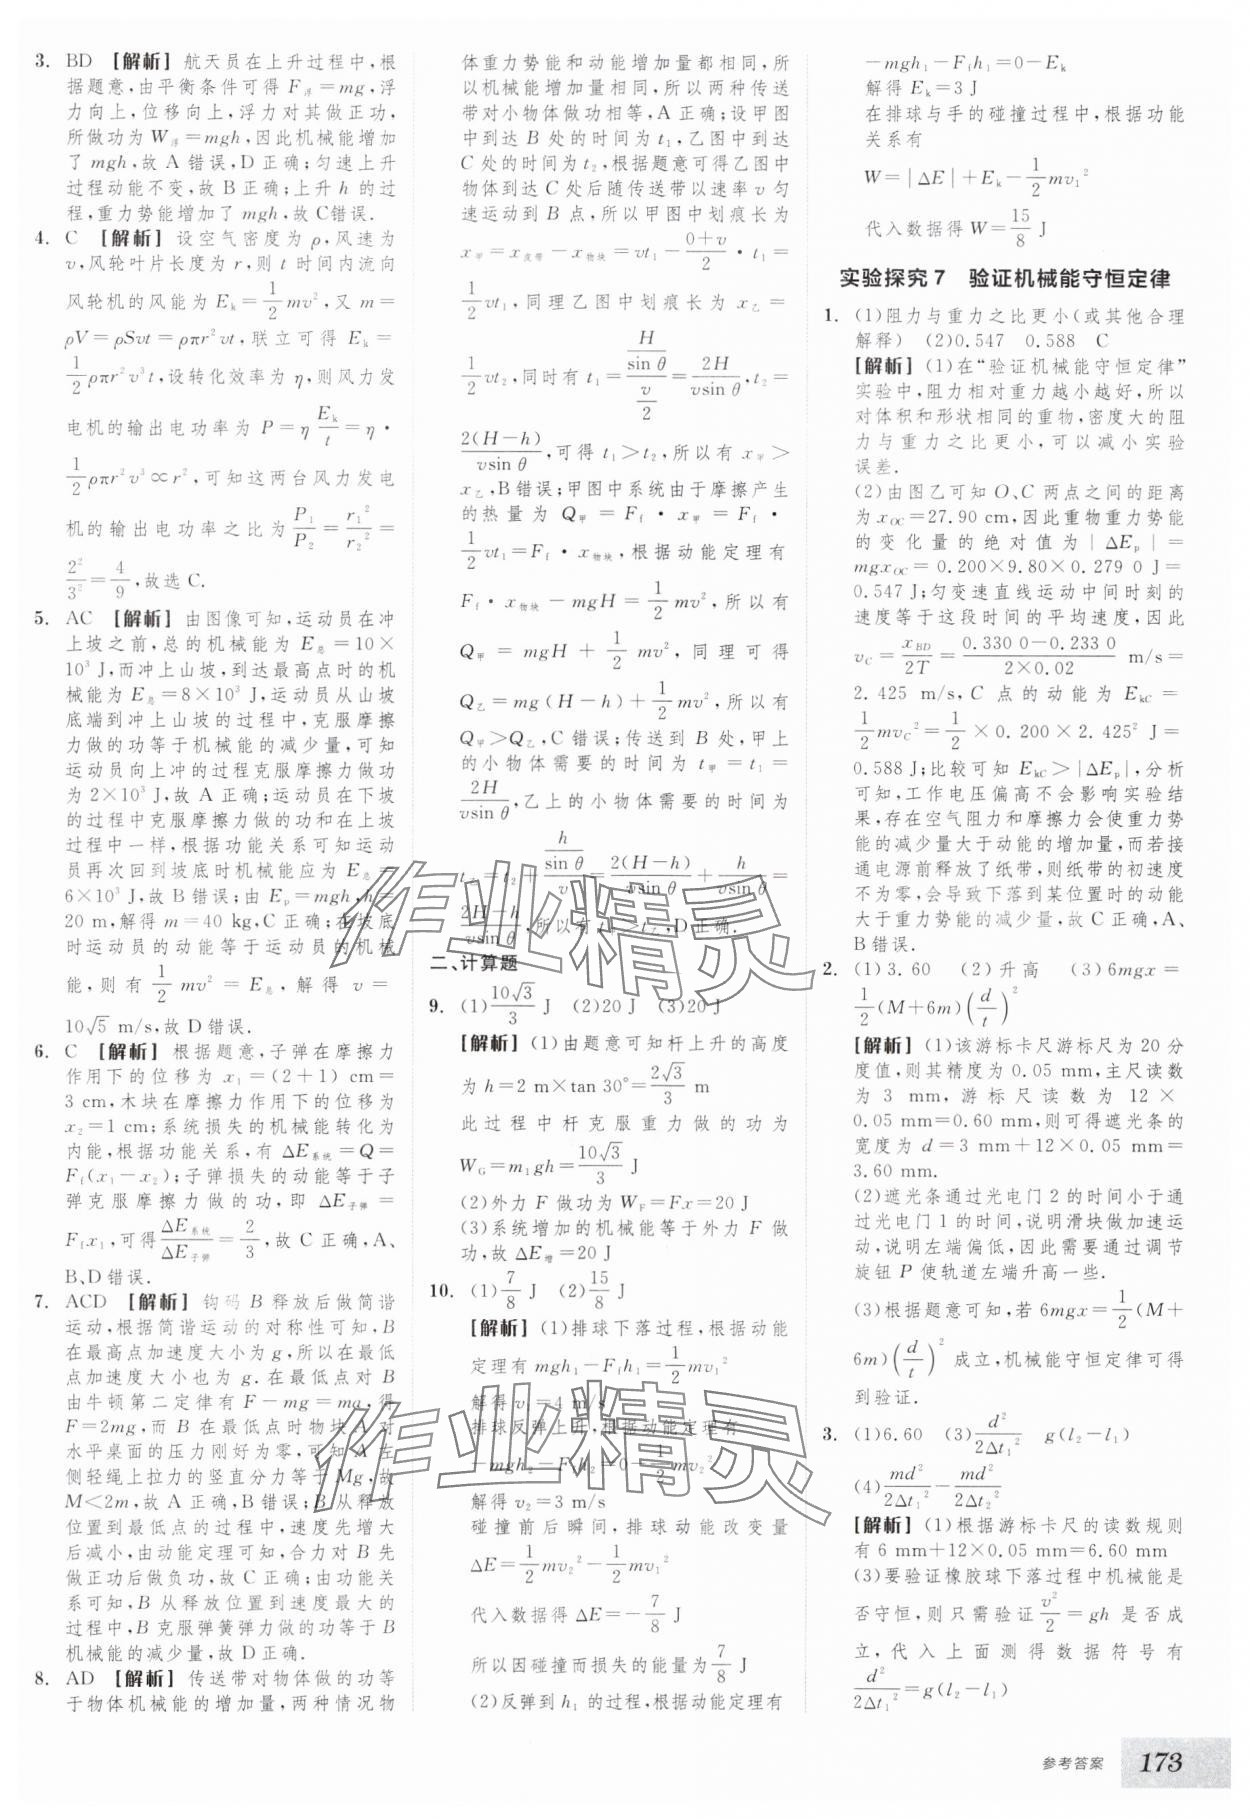 3. BD 【解析】 航天员在上升过程中,根
据题意,由平衡条件可得 F浮=mg,浮
力向上,位移向上,浮力对其做正功,
所做功为 W浮=mgh,因此机械能增加
了 mgh,故 A 错误,D 正确;匀速上升
过程动能不变,故 B 正确;上升 h 的过
程,重力势能增加了 mgh,故 C错误.
4. C 【解析】 设空气密度为 ρ,风速为
v,风轮叶片长度为 r,则 t 时间内流向
风轮机的风能为 Eₖ=1/2 mv²,又 m=
ρV=ρSvt=ρπr²vt,联立可得 Eₖ=
1/2 ρπr²v³t,设转化效率为 η,则风力发
电机的输出电功率为 P=η Eₖ/t=η·
1/2 ρπr²v³∝r²,可知这两台风力发电
机的输出电功率之比为 P₁/P₂=r₁²/r₂²=
2²/3²=4/9,故选 C.
5. AC 【解析】 由图像可知,运动员在冲
上坡之前,总的机械能为 E总=10×
10³ J,而冲上山坡,到达最高点时的机
械能为 E总=8×10³ J,运动员从山坡
底端到冲上山坡的过程中,克服摩擦
力做的功等于机械能的减少量,可知
运动员向上冲的过程克服摩擦力做功
为 2×10³ J,故 A 正确;运动员在下坡
的过程中克服摩擦力做的功和在上坡
过程中一样,根据功能关系可知运动
员再次回到坡底时机械能应为 E总=
6×10³ J,故 B 错误;由 Eₚ=mgh,h=
20 m,解得 m=40 kg,C 正确;在坡底
时运动员的动能等于运动员的机械
能,则有 1/2 mv²=E总,解得 v=
10√5 m/s,故 D 错误.
6. C 【解析】 根据题意,子弹在摩擦力
作用下的位移为 x₁=(2+1) cm=
3 cm,木块在摩擦力作用下的位移为
x₂=1 cm;系统损失的机械能转化为
内能,根据功能关系,有 ΔE系统=Q=
Ff(x₁-x₂);子弹损失的动能等于子
弹克服摩擦力做的功,即 ΔE子弹=
Ffx₁,可得ΔE系统/ΔE子弹=2/3,故 C 正确,A、
B、D 错误.
7. ACD 【解析】 钩码 B 释放后做简谐
运动,根据简谐运动的对称性可知,B
在最高点加速度大小为 g,所以在最低
点加速度大小也为 g.在最低点,对 B
由牛顿第二定律有 F-mg=ma,得
F=2mg,而 B 在最低点时物块 A 对
水平桌面的压力刚好为零,可知 A 左
侧轻绳上拉力的竖直分力等于 Mg,故
M<2m,故 A 正确,B 错误;B 从释放
位置到最低点的过程中,速度先增大
后减小,由动能定理可知,合力对 B 先
做正功后做负功,故 C 正确;由功能关
系可知,B 从释放位置到速度最大的
过程中,B 克服弹簧弹力做的功等于 B
机械能的减少量,故 D 正确.
8. AD 【解析】 传送带对物体做的功等
于物体机械能的增加量,两种情况物
体重力势能和动能增加量都相同,所
以机械能增加量相同,所以两种传送
带对小物体做功相等,A 正确;设甲图
中到达 B 处的时间为 t₁,乙图中到达
C 处的时间为 t₂,根据题意可得乙图中
物体到达 C 处后随传送带以速率 v 匀
速运动到 B 点,所以甲图中划痕长为
x甲=x皮带-x物块=vt₁-(0+v)/2·t₁=
1/2 vt₁,同理乙图中划痕长为 x乙=
1/2 vt₂,同时有 t₁=(H/sin θ)/(v/2)=2H/(vsin θ),t₂=
2(H-h)/(vsin θ),可得 t₁>t₂,所以有 x甲>
x乙,B 错误;甲图中系统由于摩擦产生
的热量为 Q甲=Ff·x甲=Ff·
1/2 vt₁=Ff·x物块,根据动能定理有
Ff·x物块-mgH=1/2 mv²,所以有
Q甲=mgH+1/2 mv²,同理可得
Q乙=mg(H-h)+1/2 mv²,所以有
Q甲>Q乙,C 错误;传送到 B 处,甲上
的小物体需要的时间为 t甲=t₁=
2H/(vsin θ),乙上的小物体需要的时间为
t乙=t₂+(h/sin θ)/v=2(H-h)/(vsin θ)+h/(vsin θ)=
(2H-h)/(vsin θ),所以有 t甲>t乙,D 正确.
二、计算题
9. (1)10√3/3 J (2)20 J (3)20 J
【解析】 (1)由题意可知杆上升的高度
为 h=2 m×tan 30°=2√3/3 m
此过程中杆克服重力做的功为
WG=m₁gh=10√3/3 J
(2)外力 F 做功为 WF=Fx=20 J
(3)系统增加的机械能等于外力 F 做
功,故 ΔE增=20 J
10. (1)7/8 J (2)15/8 J
【解析】 (1)排球下落过程,根据动能
定理有 mgh₁-Ffh₁=1/2 mv₁²
解得 v₁=4 m/s
排球反弹上升,根据动能定理有
-mgh₂-Ffh₂=0-1/2 mv₂²
解得 v₂=3 m/s
碰撞前后瞬间,排球动能改变量
ΔE=1/2 mv₂²-1/2 mv₁²
代入数据得 ΔE=-7/8 J
所以因碰撞而损失的能量为7/8 J
(2)反弹到 h₁ 的过程,根据动能定理有
-mgh₁-Ffh₁=0-Eₖ
解得 Eₖ=3 J
在排球与手的碰撞过程中,根据功能
关系有
W=|ΔE|+Eₖ-1/2 mv₁²
代入数据得 W=15/8 J
实验探究 7 验证机械能守恒定律
1. (1)阻力与重力之比更小(或其他合理
解释) (2)0.547 0.588 C
【解析】 (1)在“验证机械能守恒定律”
实验中,阻力相对重力越小越好,所以
对体积和形状相同的重物,密度大的阻
力与重力之比更小,可以减小实验
误差.
(2)由图乙可知 O、C 两点之间的距离
为 xOC=27.90 cm,因此重物重力势能
的变化量的绝对值为|ΔEₚ|=
mgxOC=0.200×9.80×0.279 0 J=
0.547 J;匀变速直线运动中间时刻的
速度等于这段时间的平均速度,因此
vC=xBD/2T=(0.330 0-0.233 0)/(2×0.02) m/s=
2.425 m/s,C 点的动能为 EkC=
1/2 mvC²=1/2×0.200×2.425² J=
0.588 J;比较可知 EkC>|ΔEₚ|,分析
可知,工作电压偏高不会影响实验结
果,存在空气阻力和摩擦力会使重力势
能的减少量大于动能的增加量,而若接
通电源前释放了纸带,则纸带的初速度
不为零,会导致下落到某位置时的动能
大于重力势能的减少量,故 C 正确,A、
B 错误.
2. (1)3.60 (2)升高 (3)6mgx=
1/2(M+6m)(d/t)²
【解析】 (1)该游标卡尺游标尺为 20 分
度值,则其精度为 0.05 mm,主尺读数
为 3 mm,游标尺读数为 12×
0.05 mm=0.60 mm,则可得遮光条的
宽度为 d=3 mm+12×0.05 mm=
3.60 mm.
(2)遮光条通过光电门 2 的时间小于通
过光电门 1 的时间,说明滑块做加速运
动,说明左端偏低,因此需要通过调节
旋钮 P 使轨道左端升高一些.
(3)根据题意可知,若 6mgx=1/2(M+
6m)(d/t)² 成立,机械能守恒定律可得
到验证.
3. (1)6.60 (3)d²/2Δt₁² g(l₂-l₁)
(4)md²/2Δt₁²-md²/2Δt₂²
【解析】 (1)根据游标卡尺的读数规则
有 6 mm+12×0.05 mm=6.60 mm
(3)要验证橡胶球下落过程中机械能是
否守恒,则只需验证v²/2=gh 是否成
立,代入上面测得数据符号有
d²/2Δt₁²=g(l₂-l₁)
作业精灵
作业精灵
参考答案 173